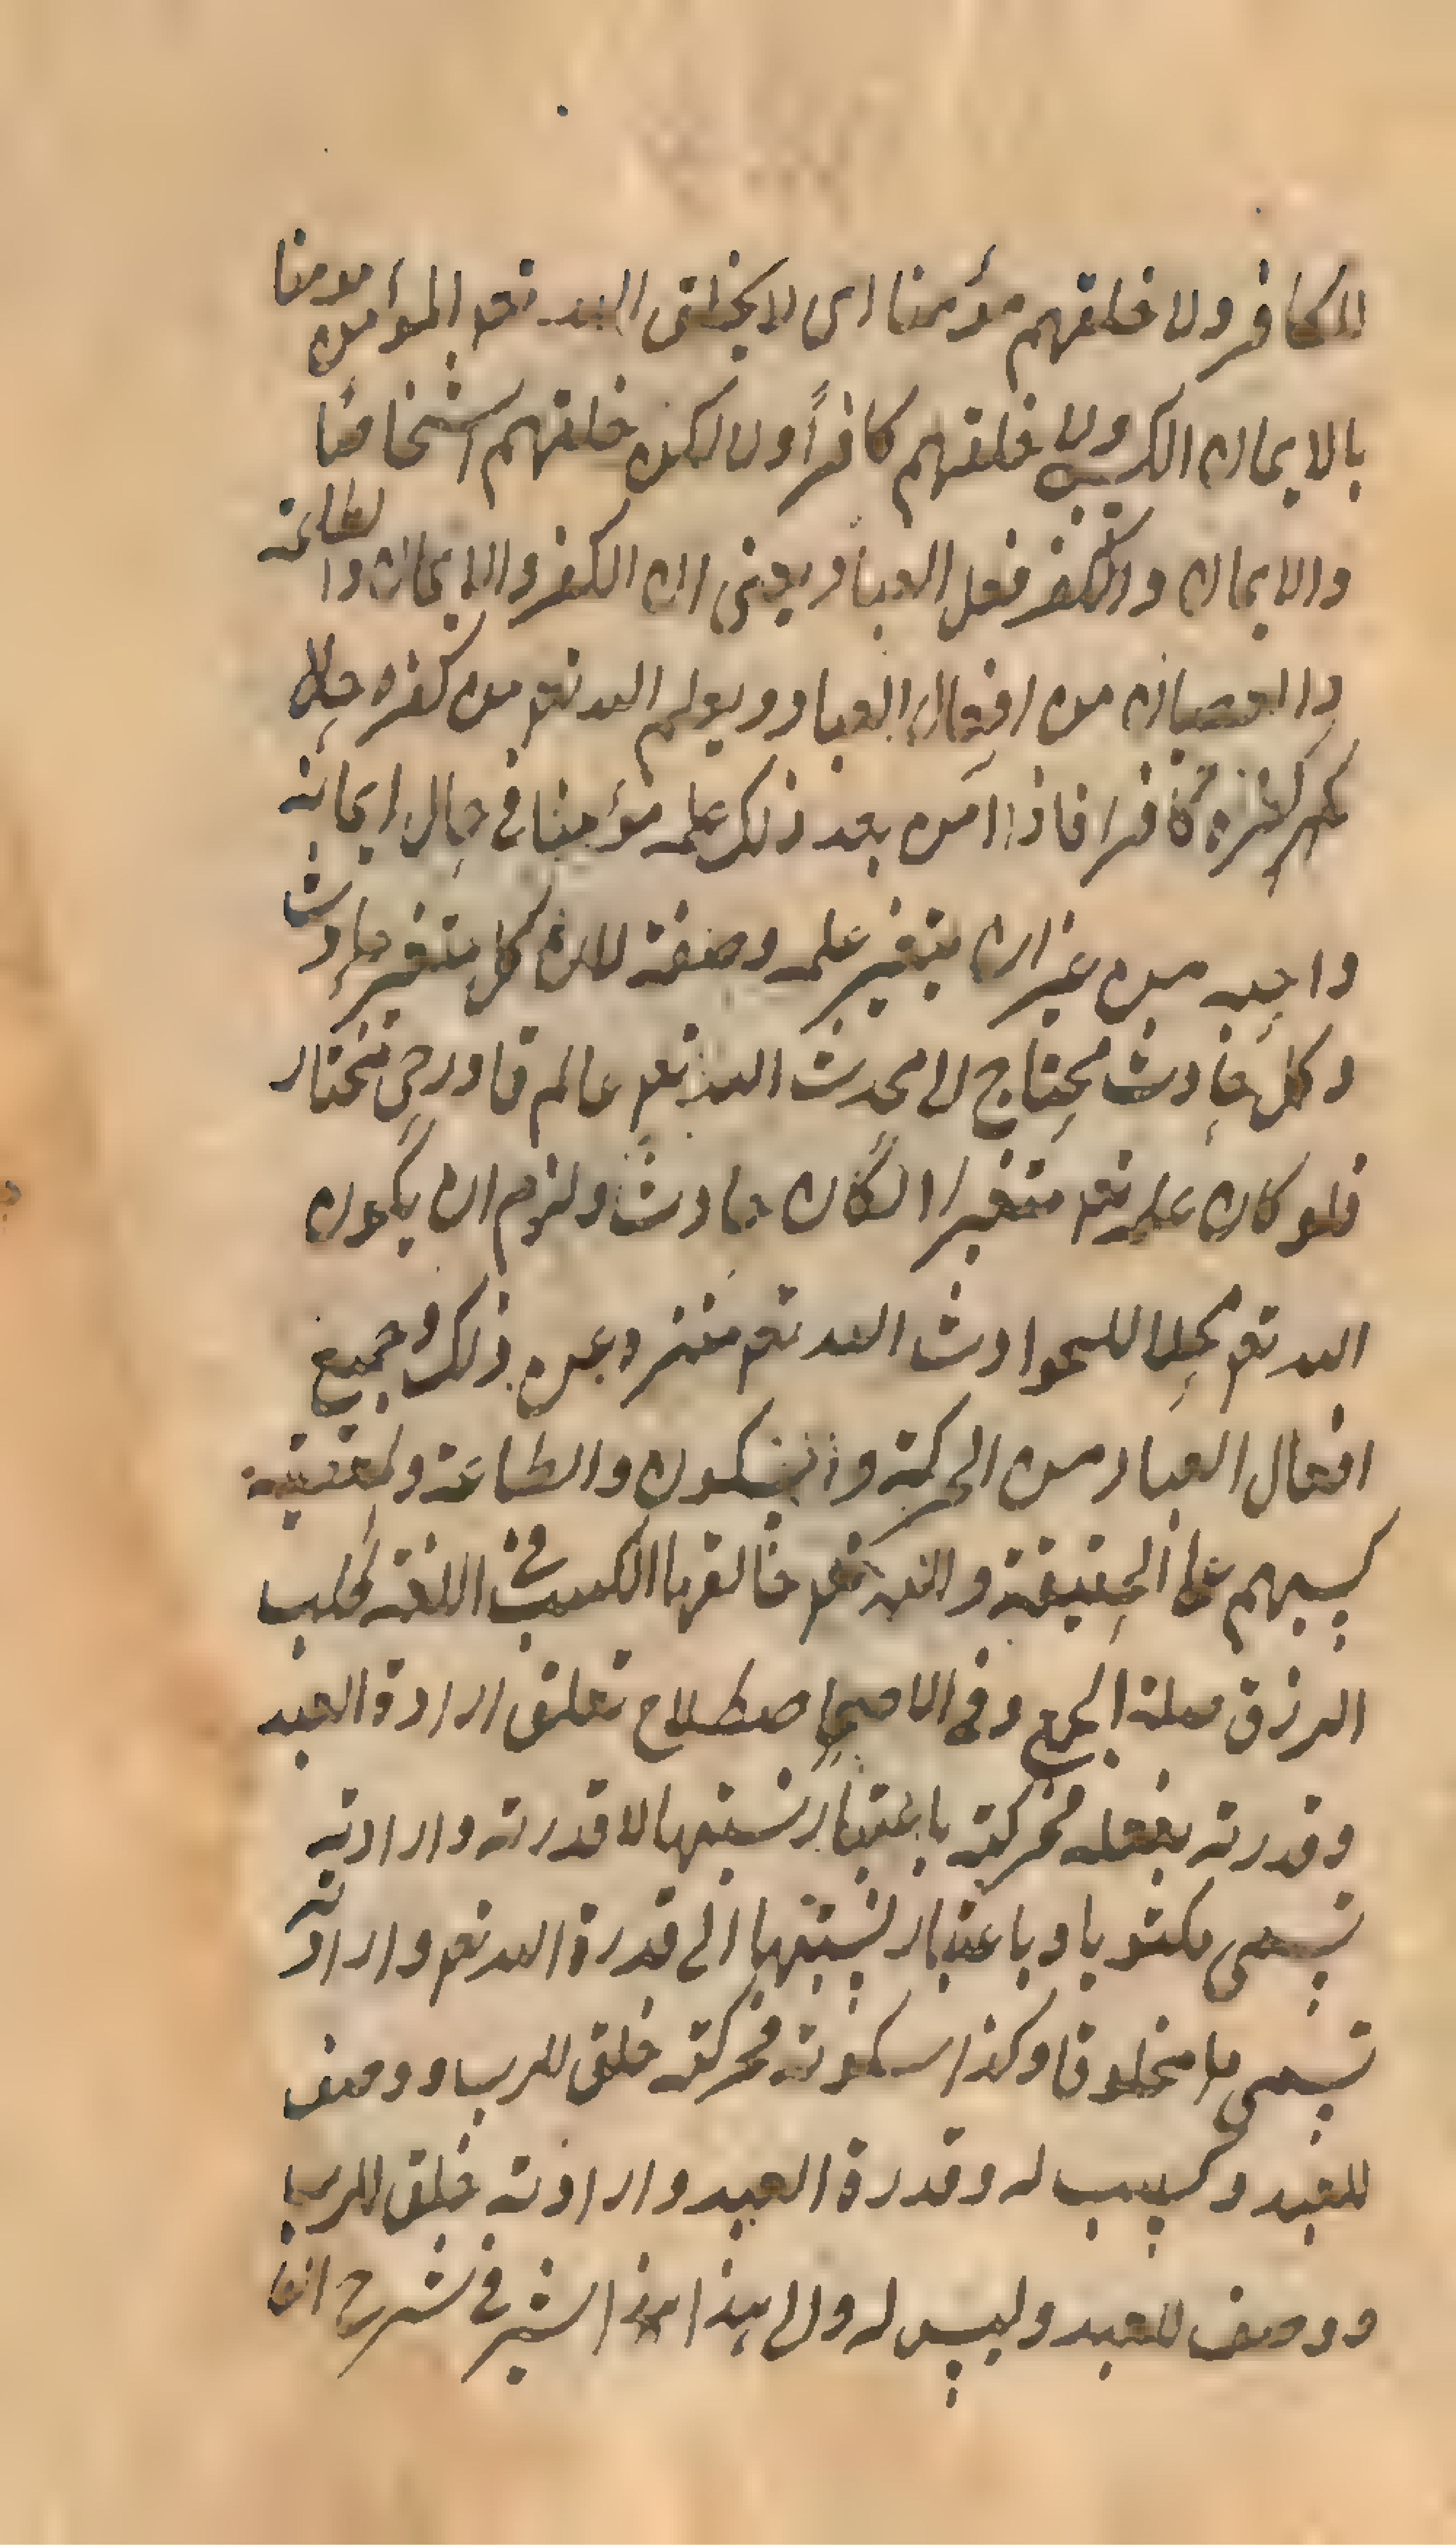 الكافر ولا خلقهم مؤمنا اى لا يخلق الله تعم المؤمن مومنا
بالايمان الكريس ولا خلقهم كافراً ولا لكن خلقهم اشخاصًا
والايمان والكفر فعل العباد يعنى ان الكفر والايمان والطاعة
والعصيان من افعال العباد ويعلم الله تعم من كفره حال
كفره كافرا فاذا امن بعد ذلك علمه مؤمنا فى حال ايمانه
واحبه من غير ان يتغير علمه وصفة لان كل متغير حادث
وكل حادث محتاج الى محدث الله تعم عالم قادر حى مختار
فلو كان علمه تعم متغيرا لكان حادث ولزم ان يكون
الله تعم محلا للحوادث الله تعم منزه عن ذلك وجميع
افعال العباد من الحركة والسكون والطاعة ولمعصية
كسبهم على الحقيقة والله تعم خالقها الكسب فى اللغة طلب
الرزق صلة الجمع وفى الاصطلاح تعلق ارادة العبد
وقدرته بفعله فحركته باعتبار نسبتها الا قدرته وارادته
تسمى مكسوبا وباعتبار نسبتها الى قدرة الله تعم وارادته
تسمى مخلوقا وكذا سكونه فحركته خلق للرب ووصف
للعبد وكسب له وقدرة العبد وارادته خلق للرب
ووصف للعبد وليس له والى هذا هذا اشير فى شرح العقا